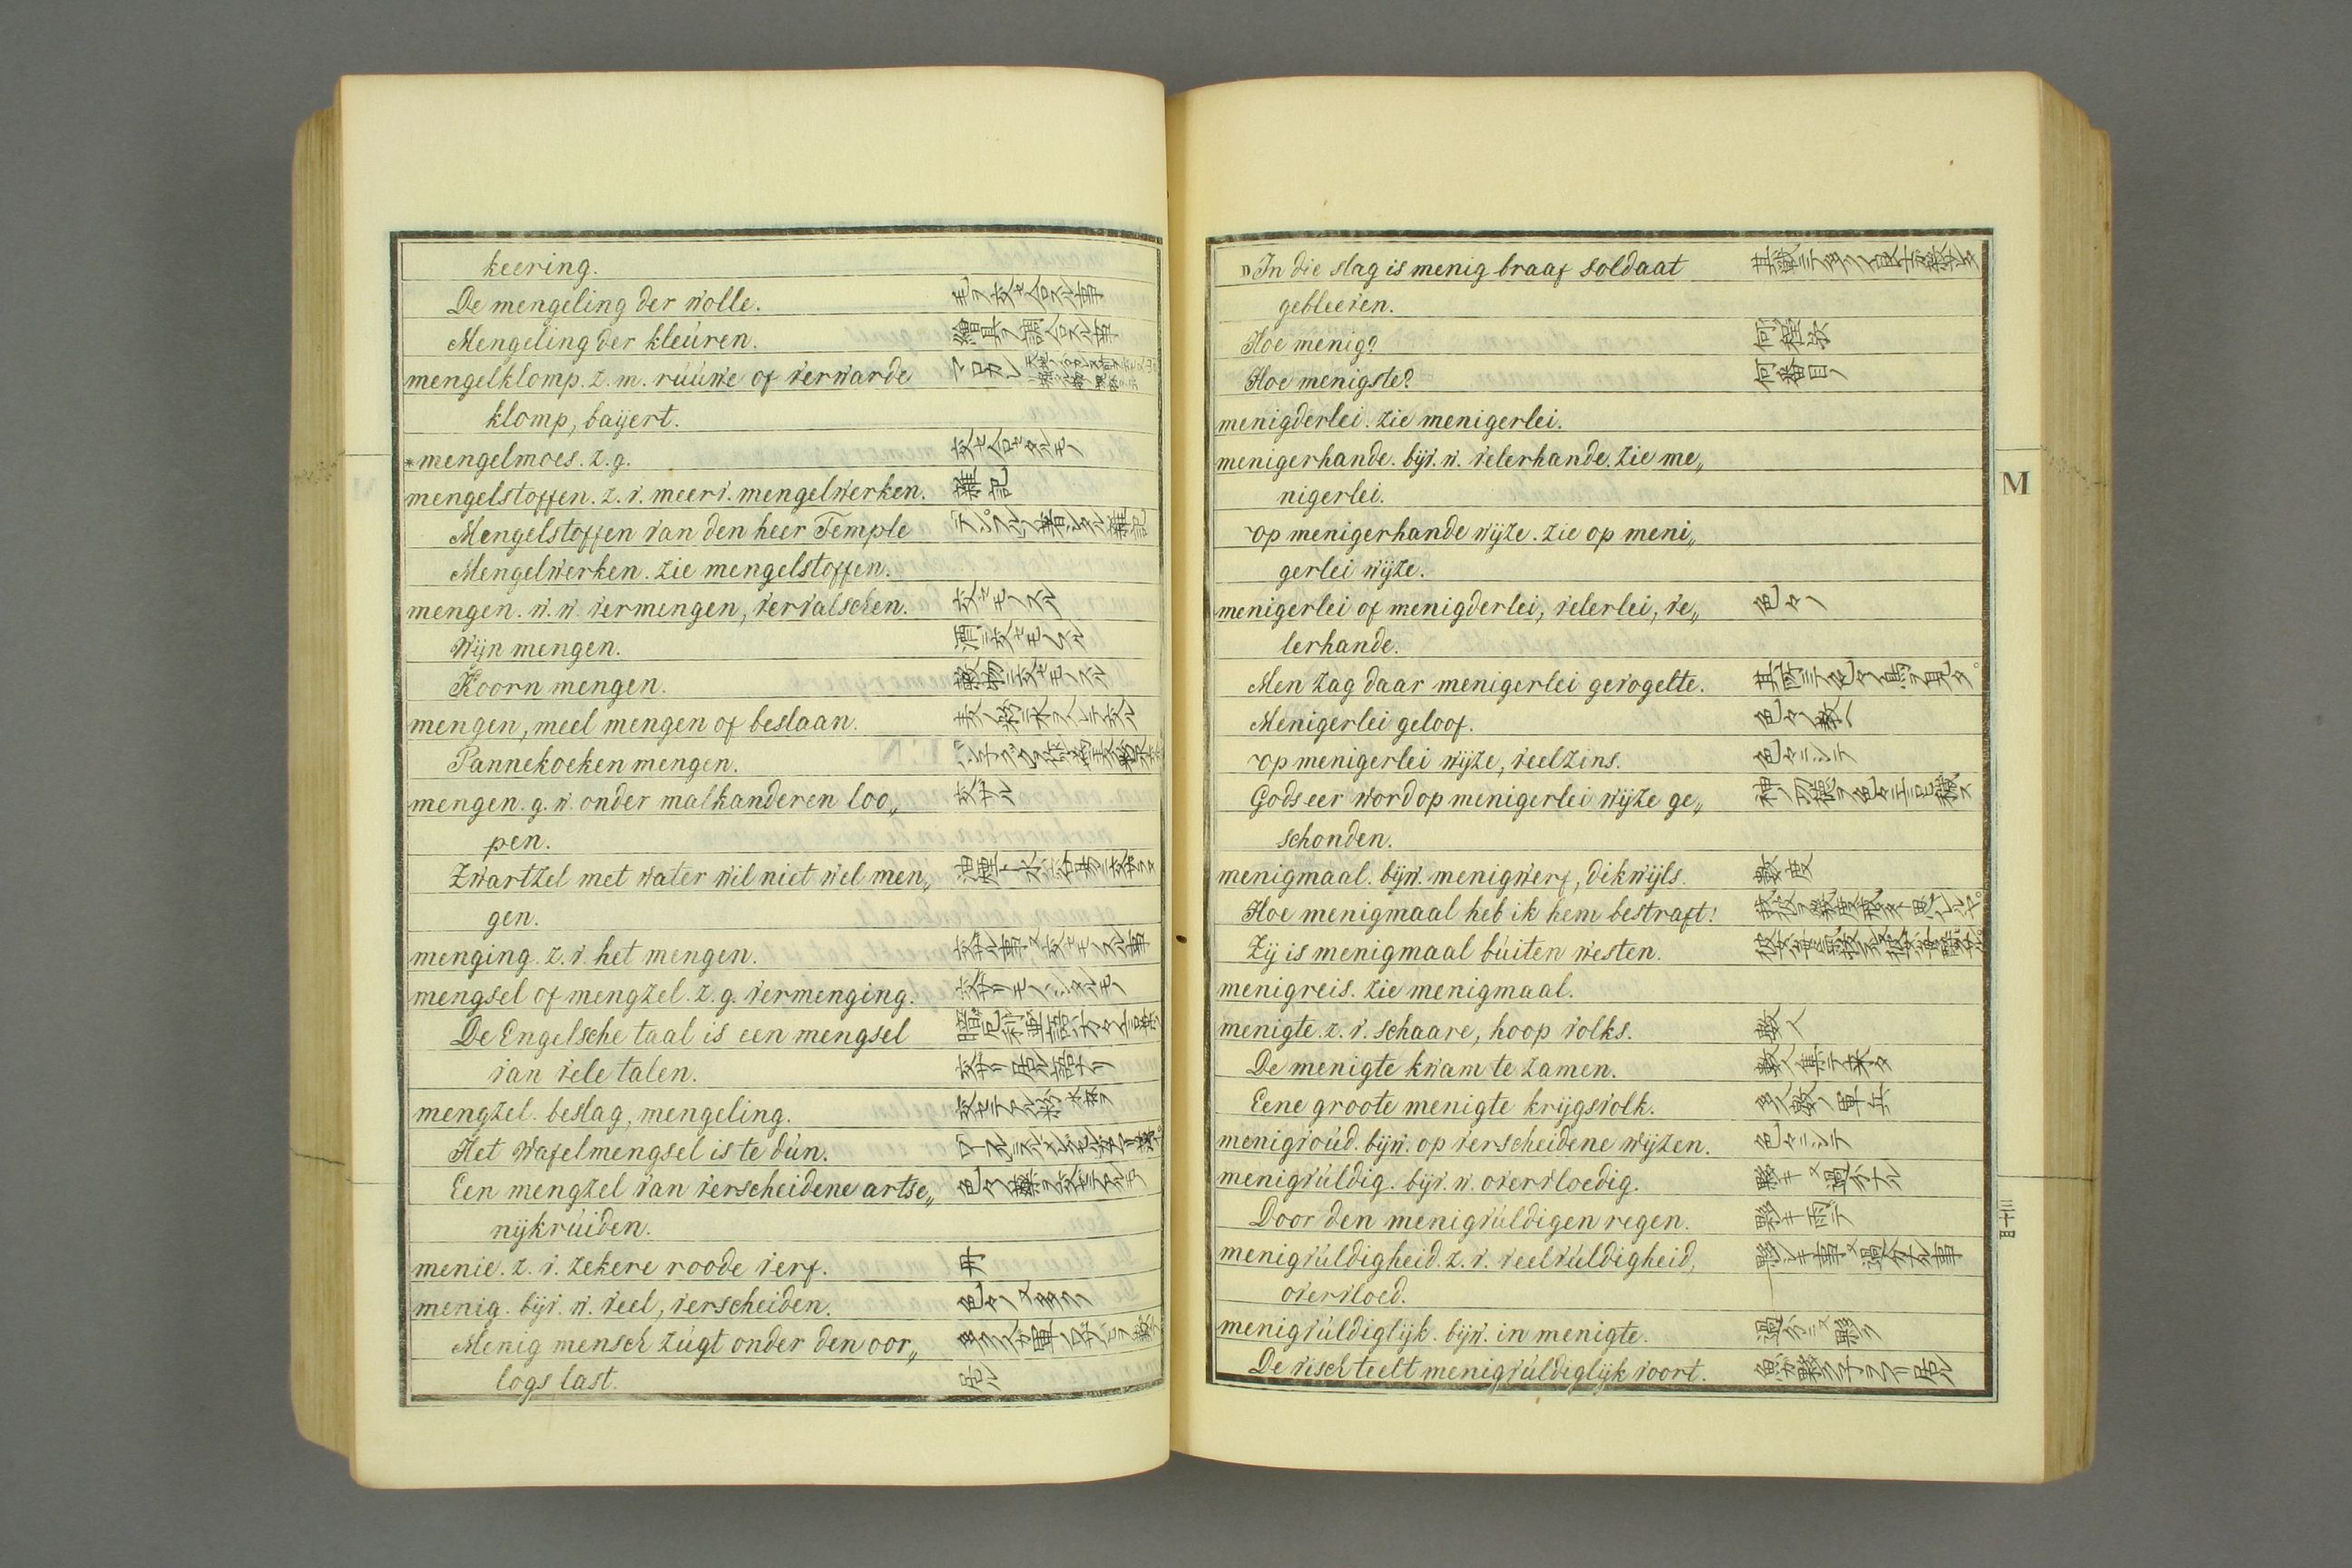 keering.
De mengeling der wolle. 毛ヲ交セ合スル事
Mengeling der kleúren. 繪具ヲ調合スル事
mengelklomp. z. m. rúúwe of verwarde
klomp, bayert.
*mengelmoes. z. g. 交セ合セタルモノ
mengelstoffen. z. v. meerv. mengelwerken. 雜記
Mengelstoffen van den heer Temple 「テンプル」ノ著シタル雜記
Mengelwerken. zie mengelstoffen.
mengen. w. w. vermengen, vervalschen. 交セモノスル
Wijn mengen. 酒ニ交セモノスル
Koorn mengen. 穀物ニ交セモノスル
mengen, meel mengen of beslaan. 麦ノ粉ニ水ヲ入レテ交ル
Pannekoeken mengen.
mengen. g. w. onder malkanderen loo„ 交サル
pen.
Zwartzel met water wil niet wel men„
gen.
menging. z. v. het mengen. 交サル事又交セモノスル事
mengsel of mengzel. z. g. vermenging. 交リモノシタルモノ
De Engelsche taal is een mengsel
van vele talen. 交リ居ル語ナリ
mengzel. beslag, mengeling.
Het wafelmengsel is te dún.
Een mengzel van verscheidene artse„ 色々ノ藥ヲ交セテアルモノ
nijkrúiden.
menie. z. v. zekere roode verf. 丹
menig. bijv. w. veel, verscheiden. 色々ノ又多クノ
Menig mensch zúgt onder den oor„
logs last. 居ル
In die slag is menig braaf soldaat
gebleeven.
Hoe menig? 何程歟
Hoe menigste? 何番目ノ
menigderlei. zie menigerlei.
menigerhande. bijv. w. velerhande. zie me„
nigerlei.
op menigerhande wijze. zie op meni„
gerlei wijze.
menigerlei of menigderlei, velerlei, ve„ 色々ノ
lerhande.
Men zag daar menigerlei gevogelte. 其所ニテ色々ノ鳥ヲ見タ。
Menigerlei geloof. 色々ノ教ヘ
op menigerlei wijze, veelzins. 色々ニシテ
Gods eer word op menigerlei wijze ge„
schonden.
menigmaal. bijw. menigwerf, dikwijls. 數度
Hoe menigmaal heb ik hem bestraft!
Zij is menigmaal búiten westen.
menigreis. zie menigmaal.
menigte. z. v. schaare, hoop volks. 數人
De menigte kwam te zamen. 數人集テ来タ
Eene groote menigte krijgsvolk. 多人數ノ軍兵
menigvoúd. bijw. op verscheidene wijzen. 色々ニシテ
menigvúldig. bijv. w. overvloedig. 夥キ又過分ナル
Door den menigvúldigen regen. 夥キ雨テ
menigvúldigheid. z. v. veelvúldigheid, 夥シキ事又過分ナル事
overvloed.
menigvúldiglijk. bijw. in menigte. 過分ニ又夥ク
De visch teelt menigvúldiglijk voort.
M
三十四